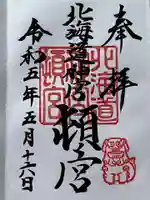 奉拝
北海道
頓宮
北海道神宮
頓宮
令和五年五月十六日